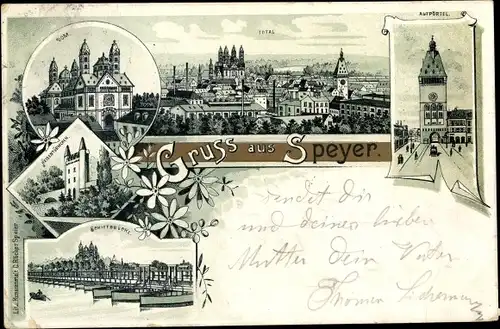 DOM
TOTAL
ALTPÖRTEL.
HEIDENTHÜRMCHEN
Gruss aus Speyer.
SCHIFFBRÜCKE.
sendet Dir
und deiner lieben
Mutter Dein Vater
Thomas